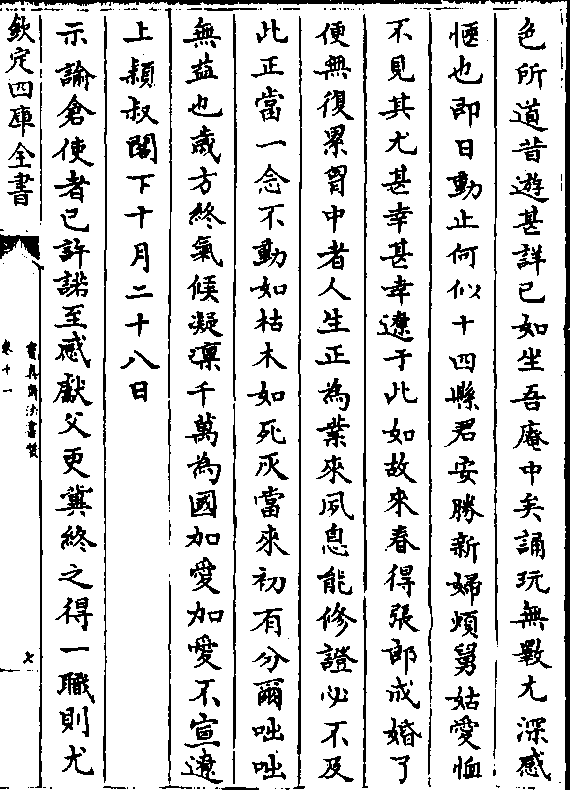 色所道昔遊甚詳已如坐吾庵中矣誦玩無斁尤深感
愜也即日動止何似十四縣君安勝新婦煩舅姑愛恤
不見其尤甚幸甚幸遼于此如故來春得張郎成婚了
便無復累胷中者人生正為業來夙息能修證必不及
此正當一念不動如枯木如死灰當來初有分爾咄咄
無益也歲方終氣候凝凜千萬為國加愛加愛不宣遼
上穎叔閣下十月二十八日
示諭倉使者已許諾至感獻父更冀終之得一職則尤
欽定四庫全書
寶真齋法書贊
卷十一
七